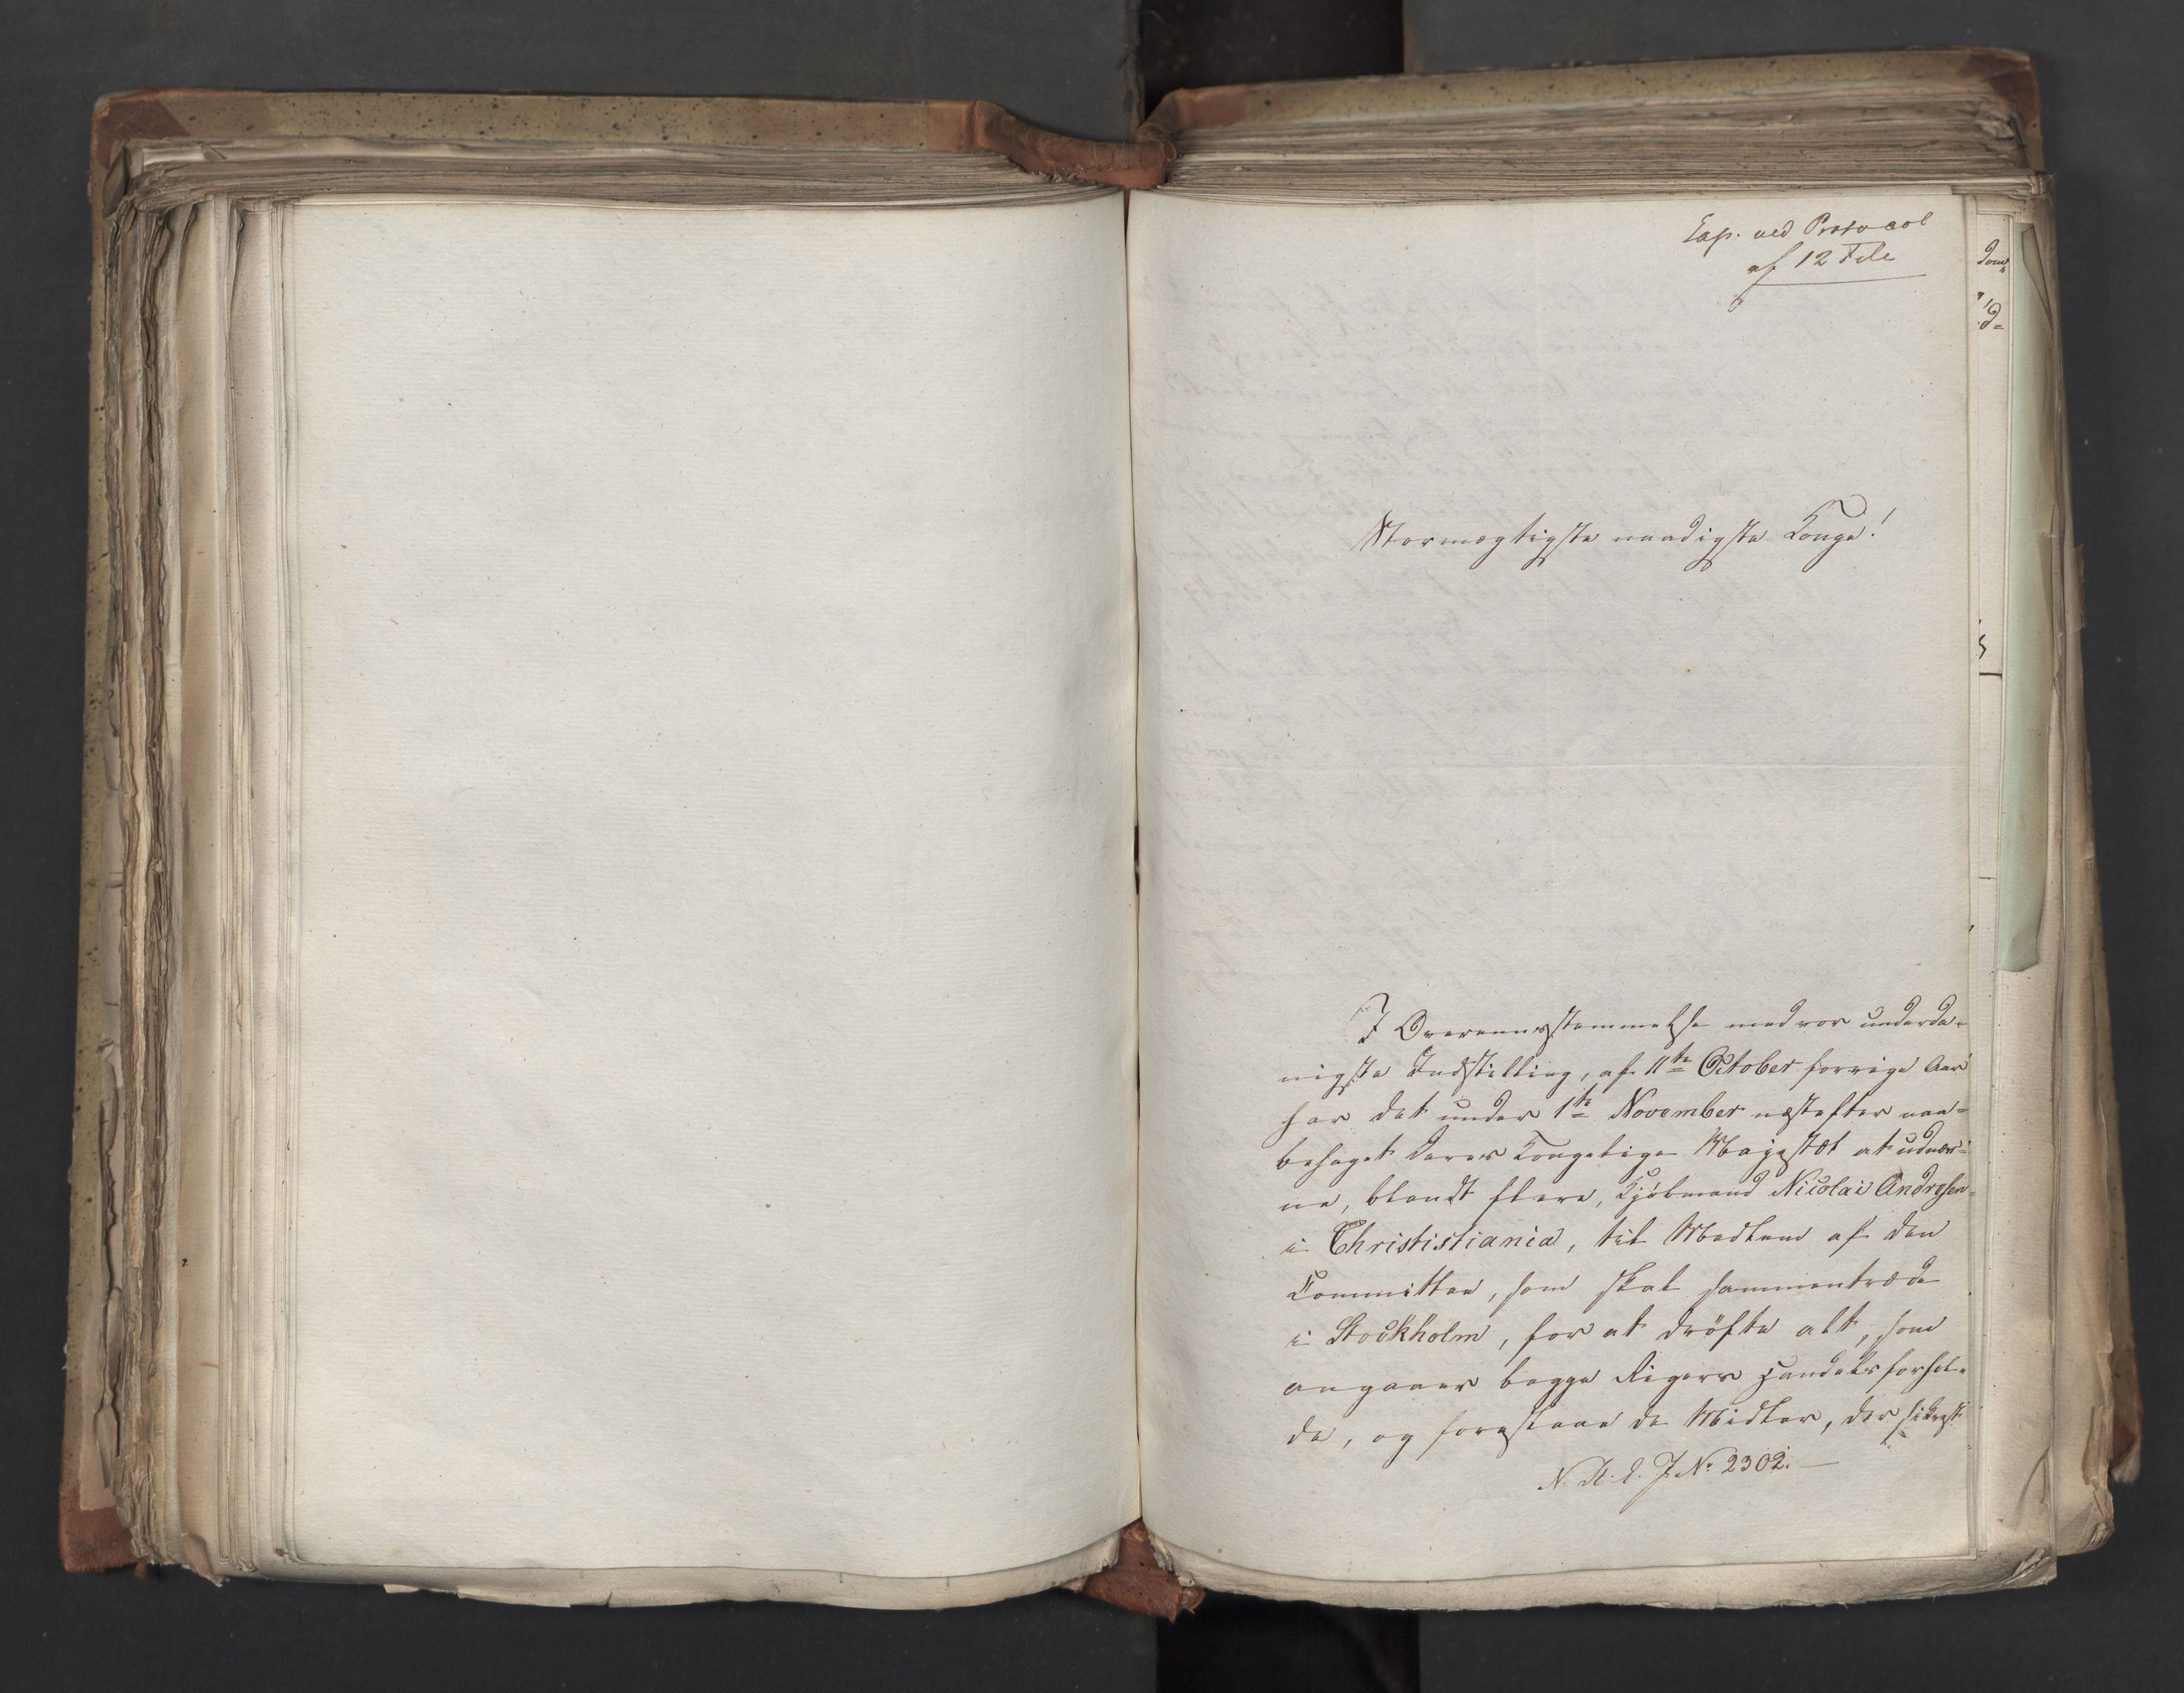 Exp. ved Protocol
af 12 Febr
Stormægtigste naadigste Konge!
I Overeensstemmelse med vor underda-
nigste Indstilling, af 11te October forrige Aar
har det under 1te November næstefter naa-
behaget Deres Kongelige Majestæt at udnæv-
ne, blandt flere, Kjøbmand Nicolai Andresen
i Christistiania, til Medlem af den
Committee, som skal sammentræde
i Stockholm, for at drøfte alt, som
angaaer begge Rigers Handelsforhol-
de, og foreslaae de Midler, der sikrest
N. R. S. J. No 2302.